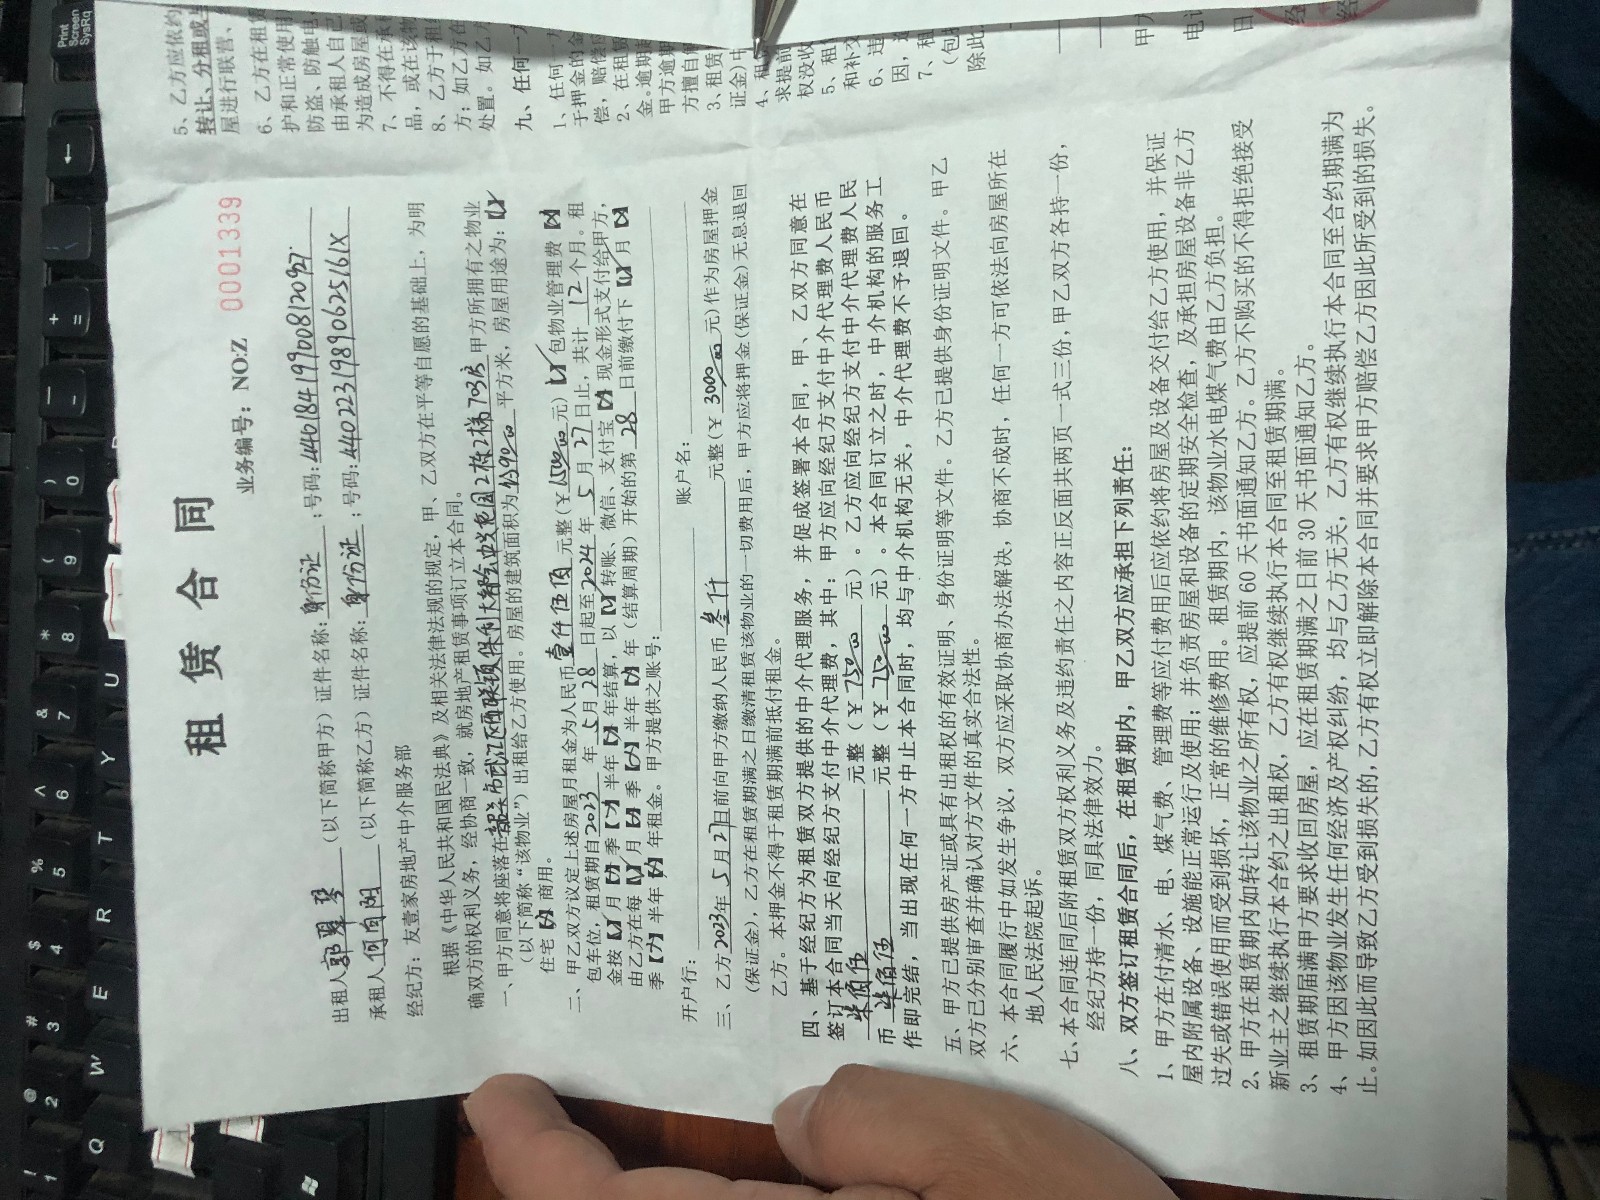 租赁合同
业务编号：NO:Z 0001339
出租人郭翠琴（以下简称甲方）证件名称：身份证；号码：
承租人何向阳（以下简称乙方）证件名称：身份证；号码：44022319890625161X
经纪方：友壹家房地产中介服务部
根据《中华人民共和国民法典》及相关法律法规的规定，甲、乙双方在平等自愿的基础上，为明
确双方的权利义务，经协商一致，就房地产租赁事项订立本合同。
一、甲方同意将座落在韶关市武江区西联镇保利大都会 2栋2梯703房 甲方所拥有之物业
（以下简称“该物业”）出租给乙方使用。房屋的建筑面积为 平方米，房屋用途为：【✓】
住宅【×】商用。
二、甲乙双方议定上述房屋月租金为人民币壹仟伍佰元整（￥1500.00元）【✓】包物业管理费【×】
包车位，租赁期自2023年5月28日起至2024年5月27日止，共计12个月。租
金按【✓】月【×】季【×】半年【×】年结算，以【✓】转账、微信、支付宝【×】现金形式支付给甲方，
由乙方在每【✓】月【×】季【×】半年【×】年（结算周期）开始的第28日前缴付下【✓】月【×】
季【×】半年【×】年租金。甲方提供之账号：
开户行： 账户名：
三、乙方2023年5月27日前向甲方缴纳人民币叁仟元整（￥3000.00元）作为房屋押金
（保证金），乙方在租赁期满之日缴清租赁该物业的一切费用后，甲方应将押金（保证金）无息退回
乙方。本押金不得于租赁期满前抵付租金。
四、基于经纪方为租赁双方提供的中介代理服务，并促成签署本合同，甲、乙双方同意在
签订本合同当天向经纪方支付中介代理费，其中：甲方应向经纪方支付中介代理费人民币
柒佰伍元整（￥750.00元）。乙方应向经纪方支付中介代理费人民
币柒佰伍元整（￥750.00元）。本合同订立之时，中介机构的服务工
作即完结，当出现任何一方中止本合同时，均与中介机构无关，中介代理费不予退回。
五、甲方已提供房产证或具有出租权的有效证明、身份证明等文件。乙方已提供身份证明文件。甲乙
双方已分别审查并确认对方文件的真实合法性。
六、本合同履行中如发生争议，双方应采取协商办法解决，协商不成时，任何一方可依法向房屋所在
地人民法院起诉。
七、本合同连同后附租赁双方权利义务及违约责任之内容正反面共两页一式三份，甲乙双方各持一份，
经纪方持一份，同具法律效力。
八、双方签订租赁合同后，在租赁期内，甲乙双方应承担下列责任：
1、甲方在付清水、电、煤气费、管理费等应付费用后应依约将房屋及设备交付给乙方使用，并保证
屋内附属设备、设施能正常运行及使用；并负责房屋和设备的定期安全检查，及承担房屋设备非乙方
过失或错误使用而受到损坏，正常的维修费用。租赁期内，该物业水电煤气费由乙方负担。
2、甲方在租赁期内如转让该物业之所有权，应提前60天书面通知乙方。乙方不购买的不得拒绝接受
新业主之继续执行本合约之出租权，乙方有权继续执行本合同至租赁期满。
3、租赁期届满甲方要求收回房屋，应在租赁期满之日前30天书面通知乙方。
4、甲方因该物业发生任何经济及产权纠纷，均与乙方无关，乙方有权继续执行本合同至合约期满为
止。如因此而导致乙方受到损失的，乙方有权立即解除本合同并要求甲方赔偿乙方因此所受到的损失。
5、乙方应依约
转让、分租或
屋进行联营、
6、乙方在租
护和正常使用
防盗、防触电
由承租人自己
为造成房屋或
7、不得在承
品，或在该物
8、乙方于租
方；如乙方在
处置。如乙方
九、任何一方
1、任何一方
于押金的金
偿，赔偿
2、在租
金。逾期
甲方逾期
方擅自
3、租赁
证金）中
4、租
求提前
权没收
5、租
和补交
6、违
因，
7、租
（包
除此
甲方
电话
日
经
经
Print Screen SysRq